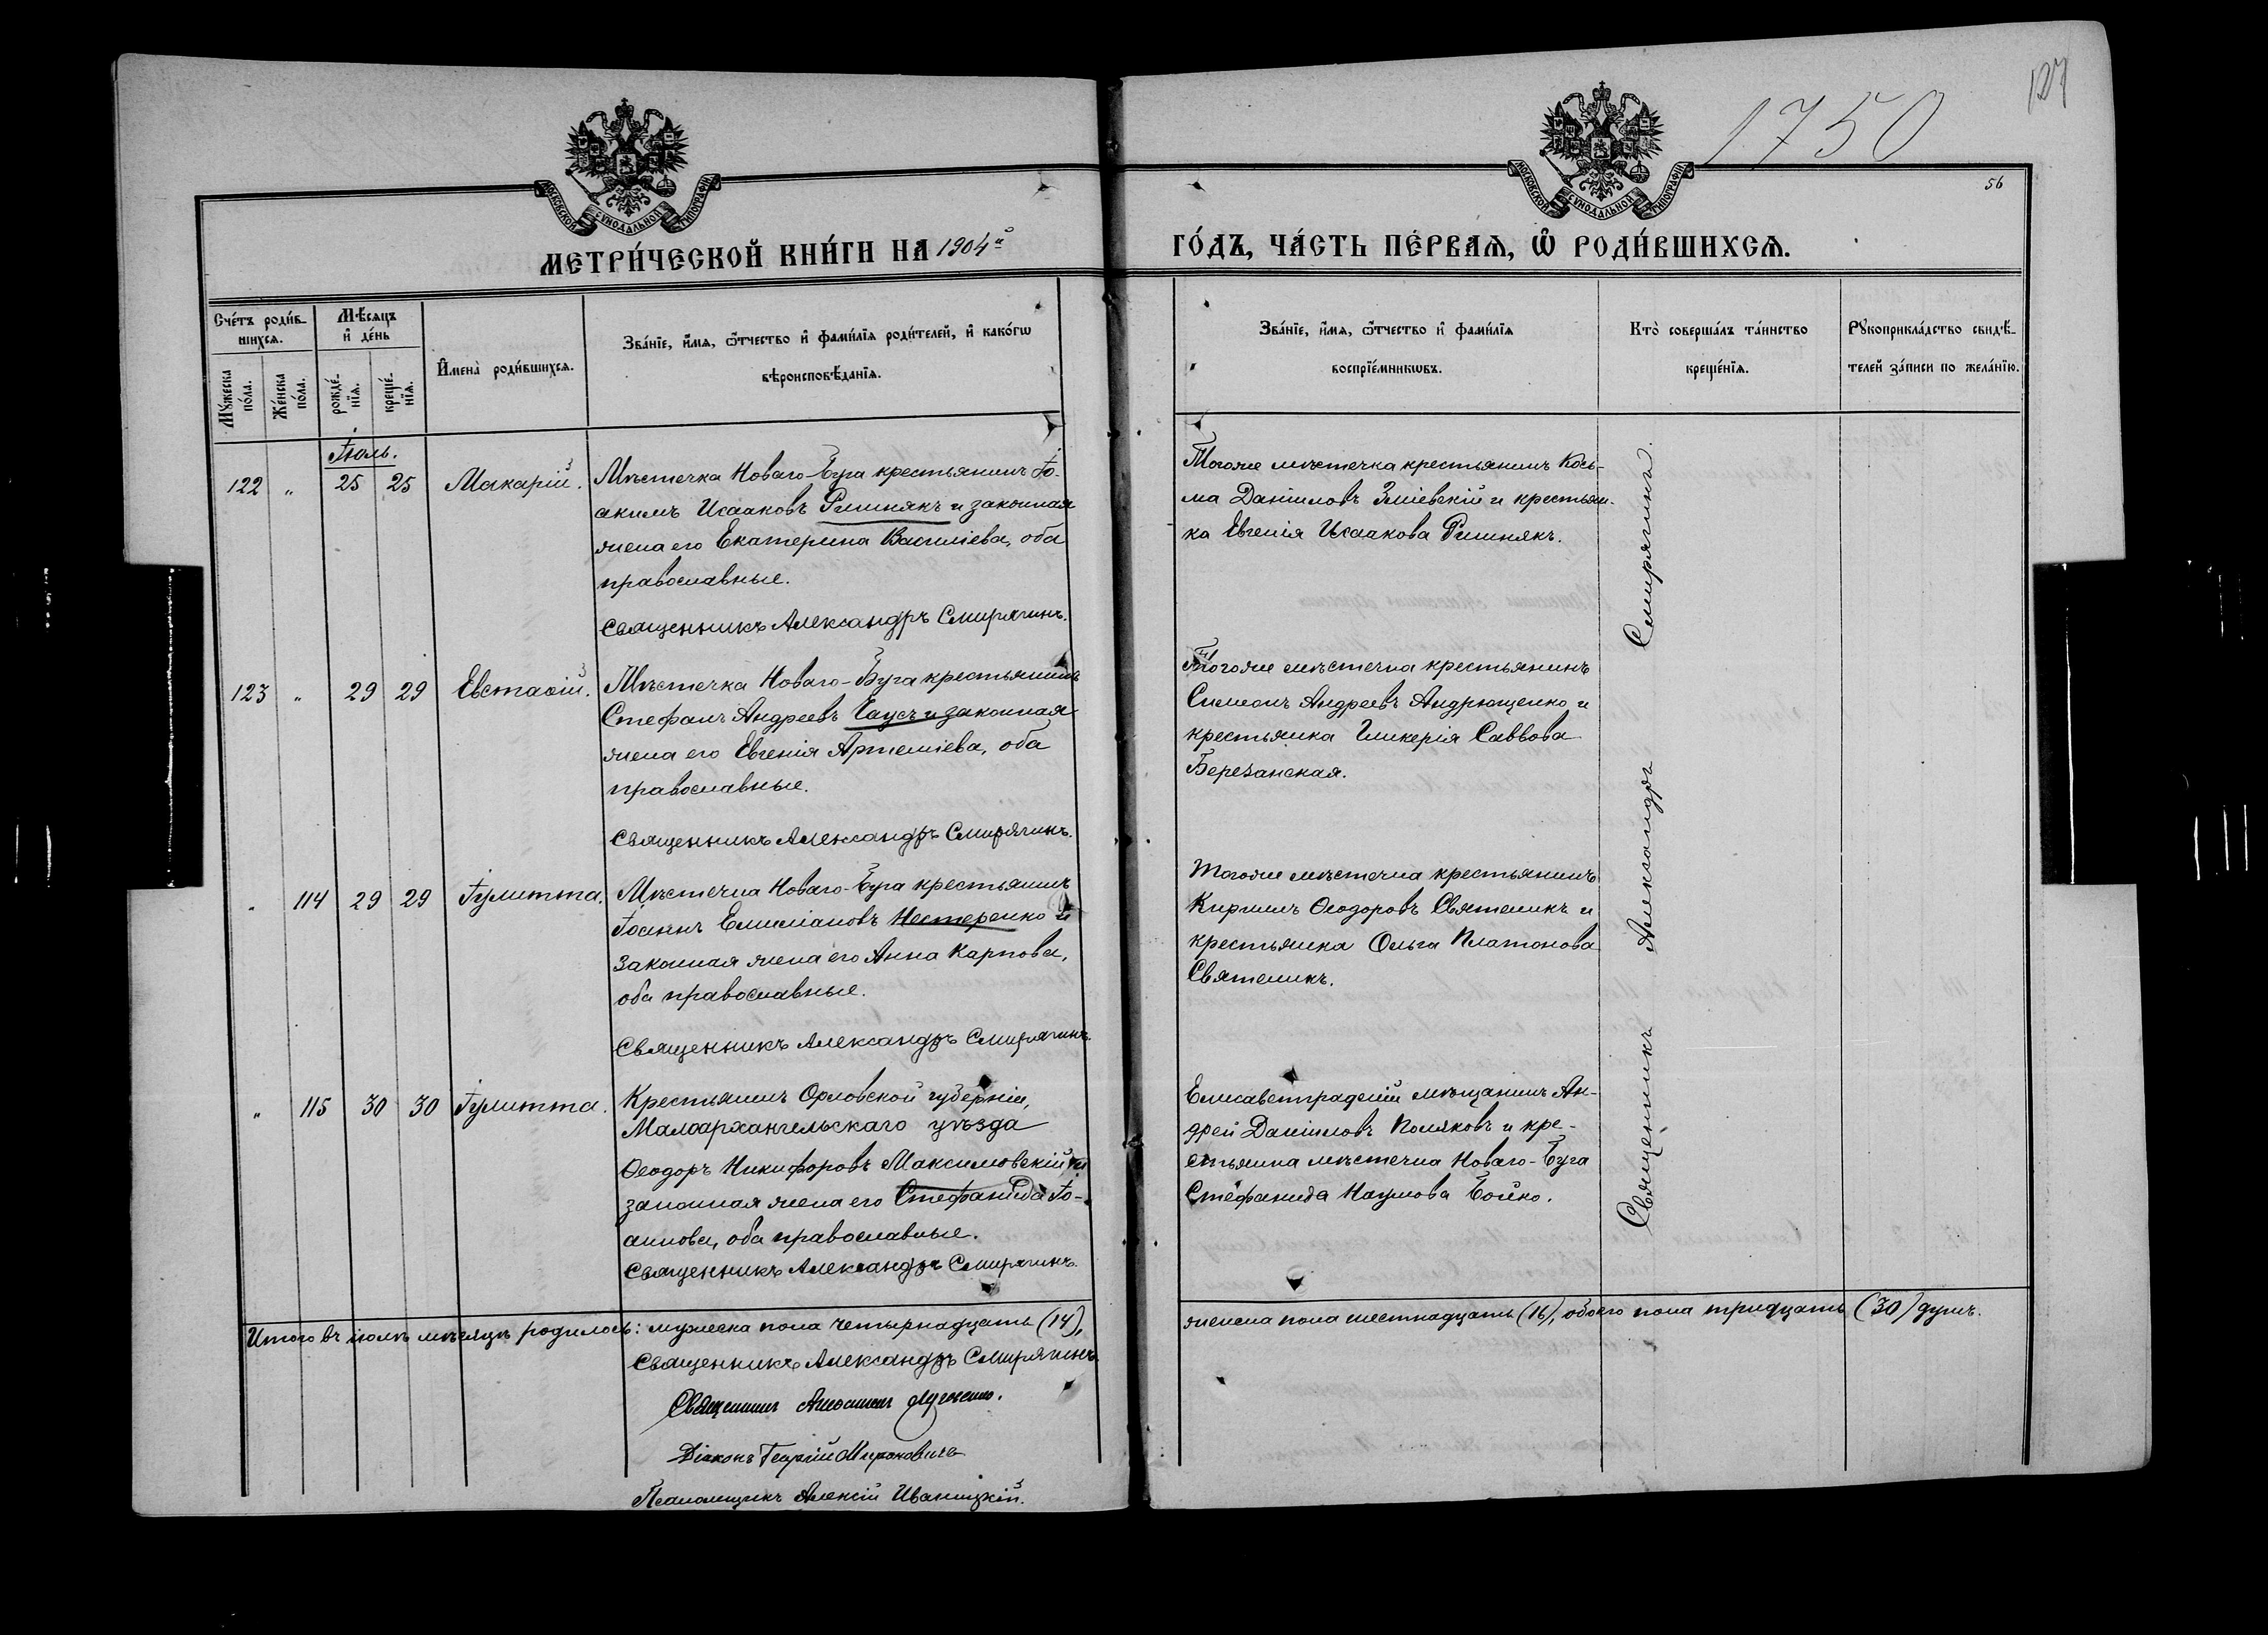 127
1750
56
МОСКОВСКОЙ СУНОДАЛЬНОЙ ТИПОГРАФІИ
МОСКОВСКОЙ СУНОДАЛЬНОЙ ТИПОГРАФІИ
МЕТРИ́ЧЕСКОЙ КНИ́ГИ НА 1904й
ГО́ДЪ, ЧА́СТЬ ПЕ́РВАѦ, Ѡ҆ РОДИ́ВШИХСѦ.
Сче́тъ роди́в-
шихсѧ.
Мѣ́сѧцъ
и҆ де́нь
Мꙋ́жеска
по́ла.
Же́нска
по́ла.
рожде́-
нїѧ.
креще́-
нїѧ.
И҆мена̀ роди́вшихсѧ.
Зва́нїе, и҆́мѧ, ѻ҆́тчество и҆ фами́лїѧ роди́телей, и҆ како́гѡ
вѣроисповѣ́данїѧ.
Зва́нїе, и҆́мѧ, ѻ҆́тчество и҆ фами́лїѧ
воспрїе́мникѡвъ.
Кто̀ соверша́лъ та́инство
креще́нїѧ.
Рꙋкоприкла́дство свидѣ́-
телей за́писи по жела́нїю.
Іюль.
122 " 25 25 Макарій.
Мѣстечка Новаго-Буга крестьянинъ Іо-
акимъ Исааковъ Римнякъ и законная
жена его Екатерина Василіева, оба
православные.
Священникъ Александръ Смирягинъ.
Тогоже мѣстечка крестьянинъ Кось-
ма Даніиловъ Зміевскій и крестьян-
ка Евгенія Исаакова Римнякъ.
123 " 29 29 Евстаѳій.
Мѣстечка Новаго-Буга крестьянинъ
Стефанъ Андреевъ Чаусъ и законная
жена его Евгенія Артеміева, оба
православные.
Священникъ Александръ Смирягинъ.
Тогоже мѣстечка крестьянинъ
Симеонъ Андреевъ Андрющенко и
крестьянка Гликерія Саввова
Березанская.
" 114 29 29 Іулитта.
Мѣстечка Новаго-Буга крестьянинъ
Іоаннъ Емиліановъ Нестеренко и
законная жена его Анна Карпова,
оба православные.
Священникъ Александръ Смирягинъ.
Тогоже мѣстечка крестьянинъ
Кириллъ Ѳеодоровъ Святеликъ и
крестьянка Ольга Платонова
Святеликъ.
" 115 30 30 Іулитта.
Крестьянинъ Орловской губерніи,
Малоархангельскаго уѣзда
Ѳеодоръ Никифоровъ Максимовскій и
законная жена его Стефанида Іо-
аннова, оба православные.
Священникъ Александръ Смирягинъ.
Елисаветградскій мѣщанинъ Ан-
дрей Даніиловъ Поляковъ и кре-
стьянка мѣстечка Новаго-Буга
Стефанида Наумова Бойко.
Священникъ Александръ Смирягинъ.
Итого въ іюлѣ мѣсяцѣ родилось: мужеска пола четырнадцать (14),
женска пола шестнадцать (16), обоего пола тридцать (30) душъ.
Священникъ Александръ Смирягинъ.
Священникъ
Діаконъ Георгій Мироновичъ
Псаломщикъ Алексій Иваницкій.